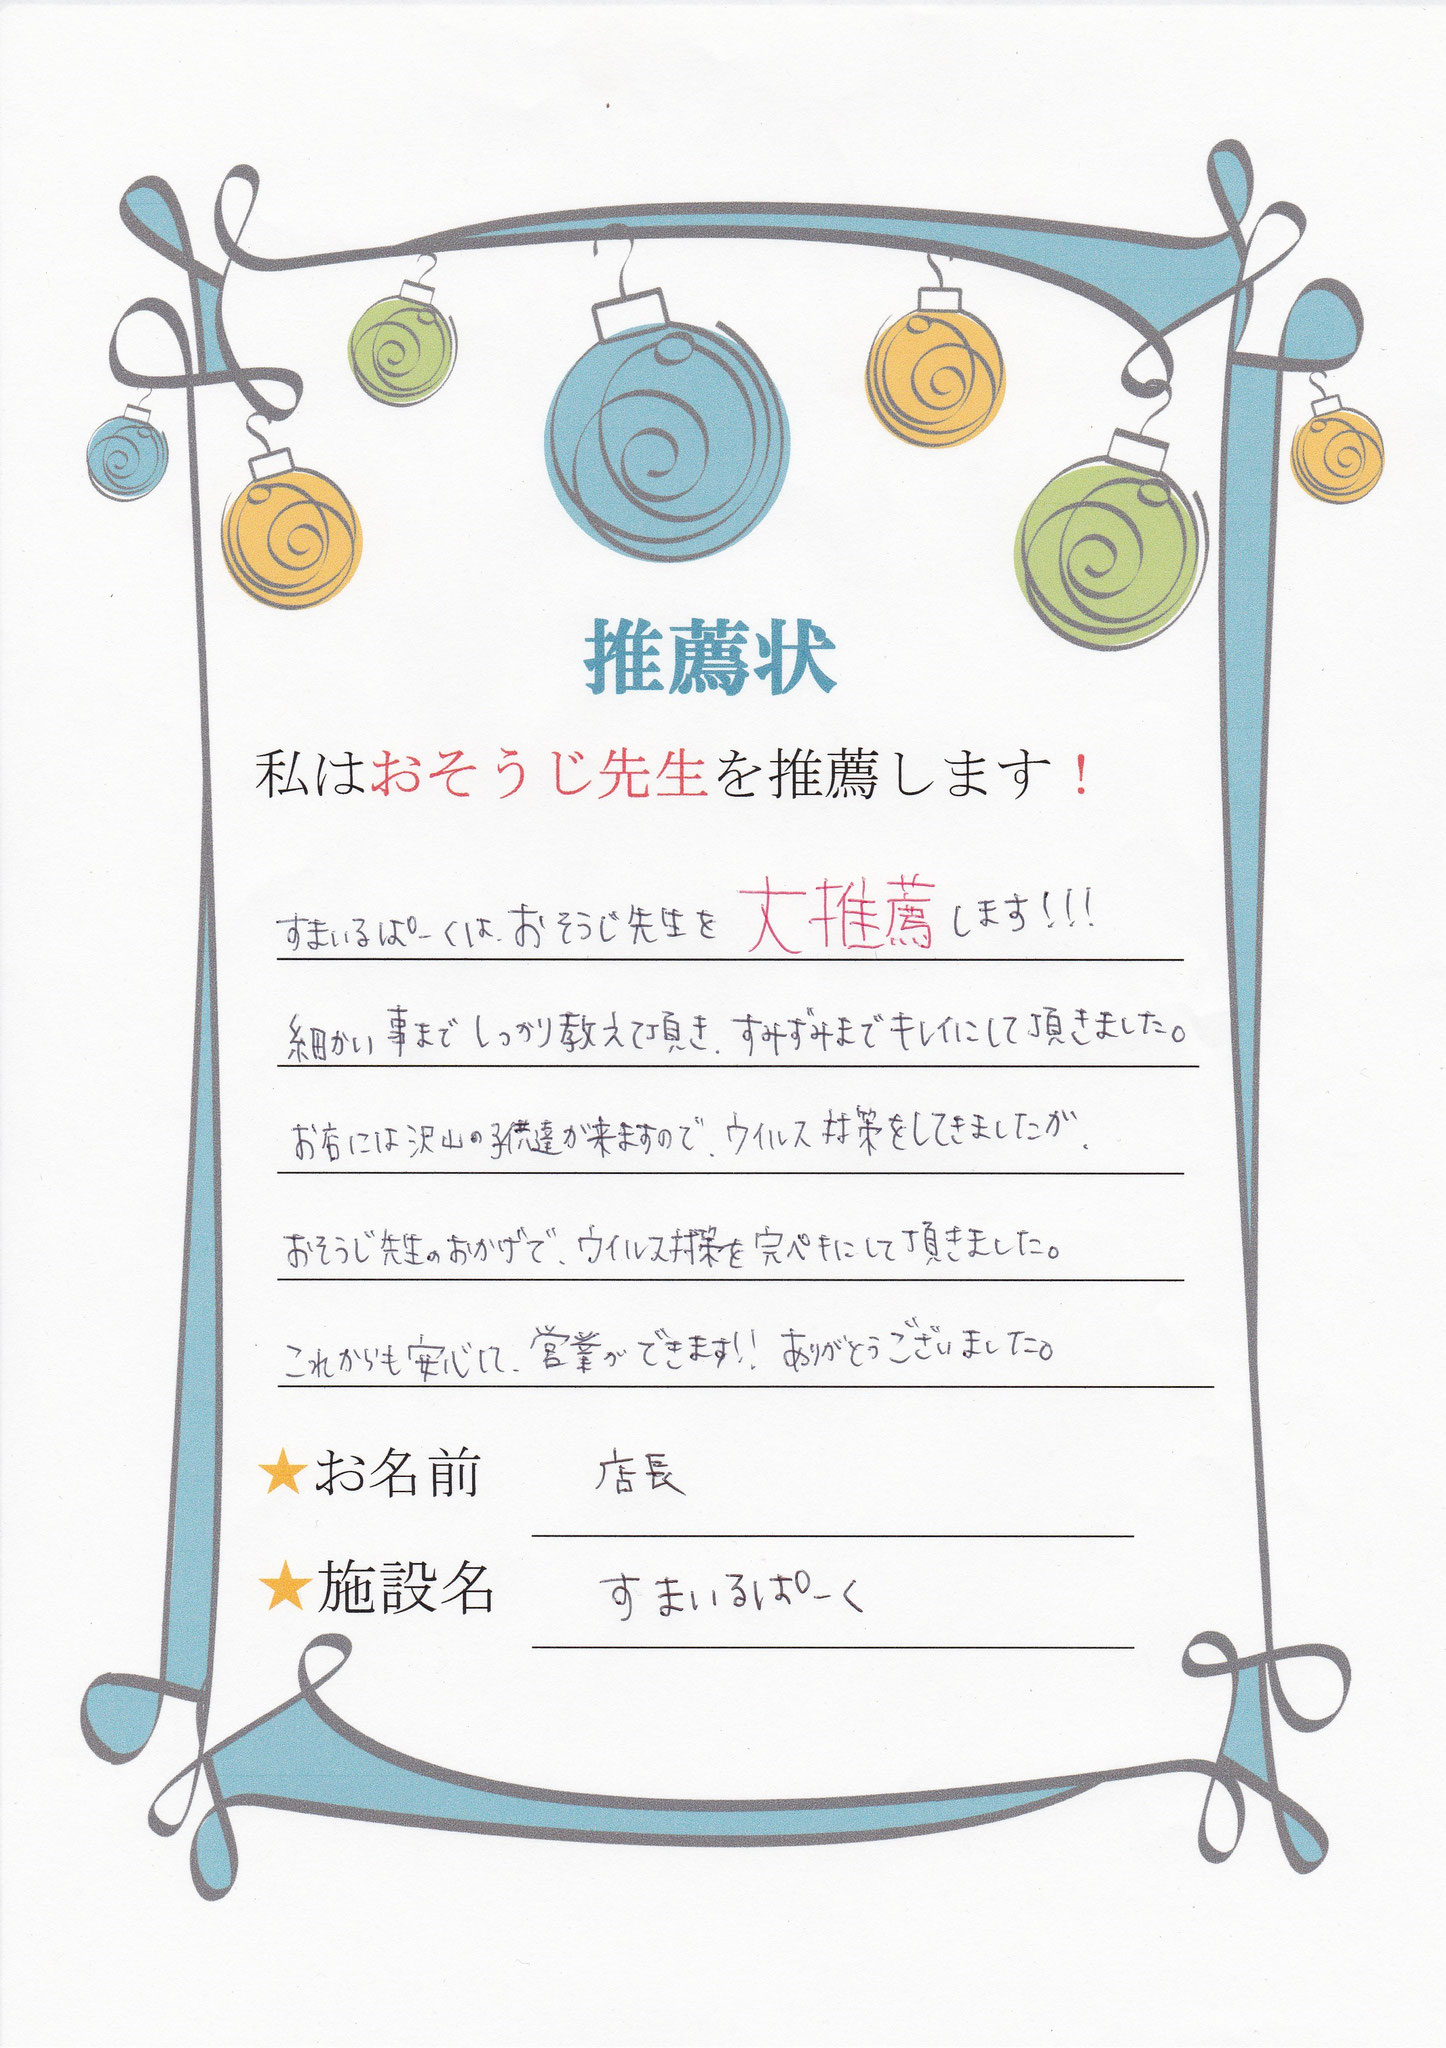 推薦状
私はおそうじ先生を推薦します！
すまいるぱーくは、おそうじ先生を大推薦します!!!
細かい事までしっかり教えて頂き、すみずみまでキレイにして頂きました。
お店には沢山の子供達が来ますので、ウイルス対策をしてきましたが、
おそうじ先生のおかげで、ウイルス対策を完ペキにして頂きました。
これからも安心して、営業ができます!! ありがとうございました。
★お名前 店長
★施設名 すまいるぱーく